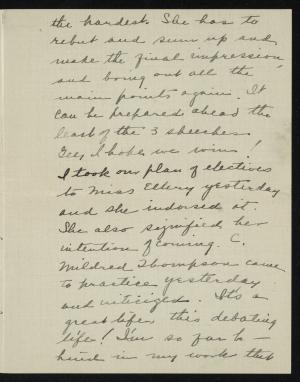 the hardest. She has to
rebut and sum up and
make the final impression,
and bring out all the
main points again. It
can be prepared ahead the
least of the 3 speeches.
Gee, I hope we win!
I took our plan of electives
to Miss Ellery yesterday
and she indorsed it.
She also signified her
intention of coming. C.
Mildred Thompson came
to practice yesterday
and criticized. It's a
great life, this debating
life! I'm so far be-
hind in my work that